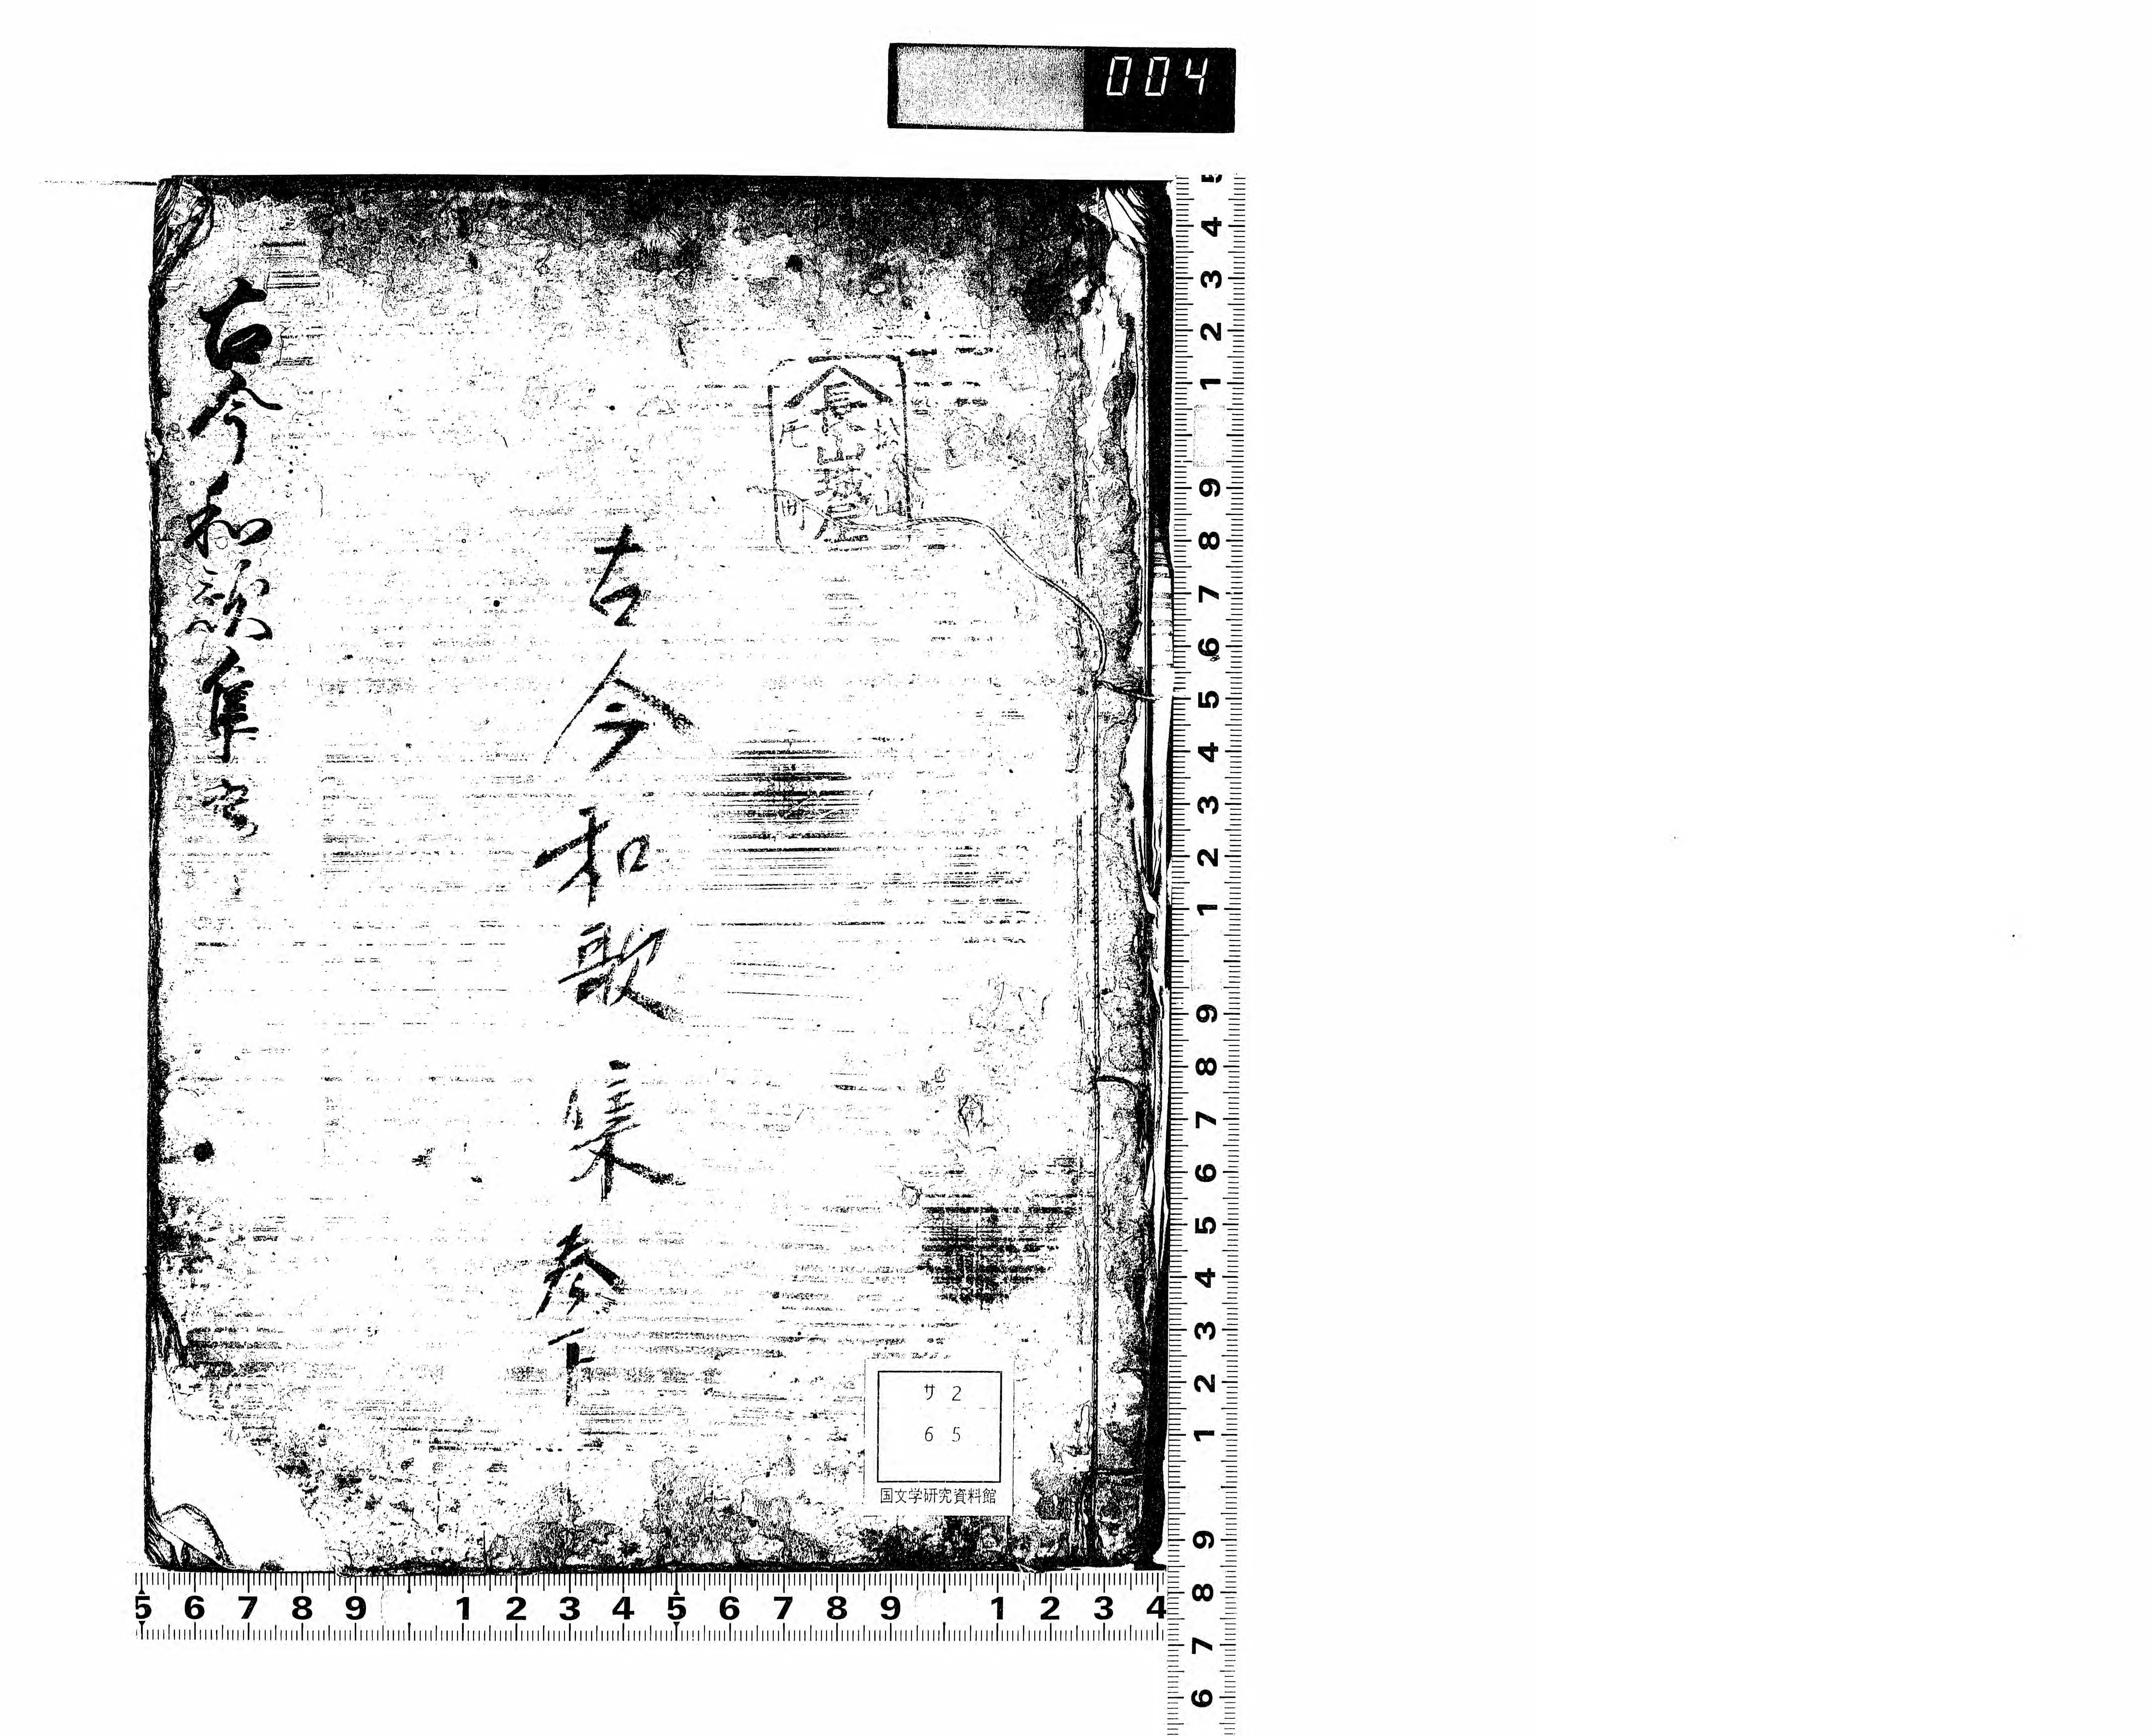 004
松山
長山越屋
古今和歌集巻下
古今和歌集
サ 2
6 5
国文学研究資料館
5 6 7 8 9 1 2 3 4 5 6 7 8 9 1 2 3 4
4 3 2 1 9 8 7 6 5 4 3 2 1 9 8 7 6 5 4 3 2 1 9 8 7 6